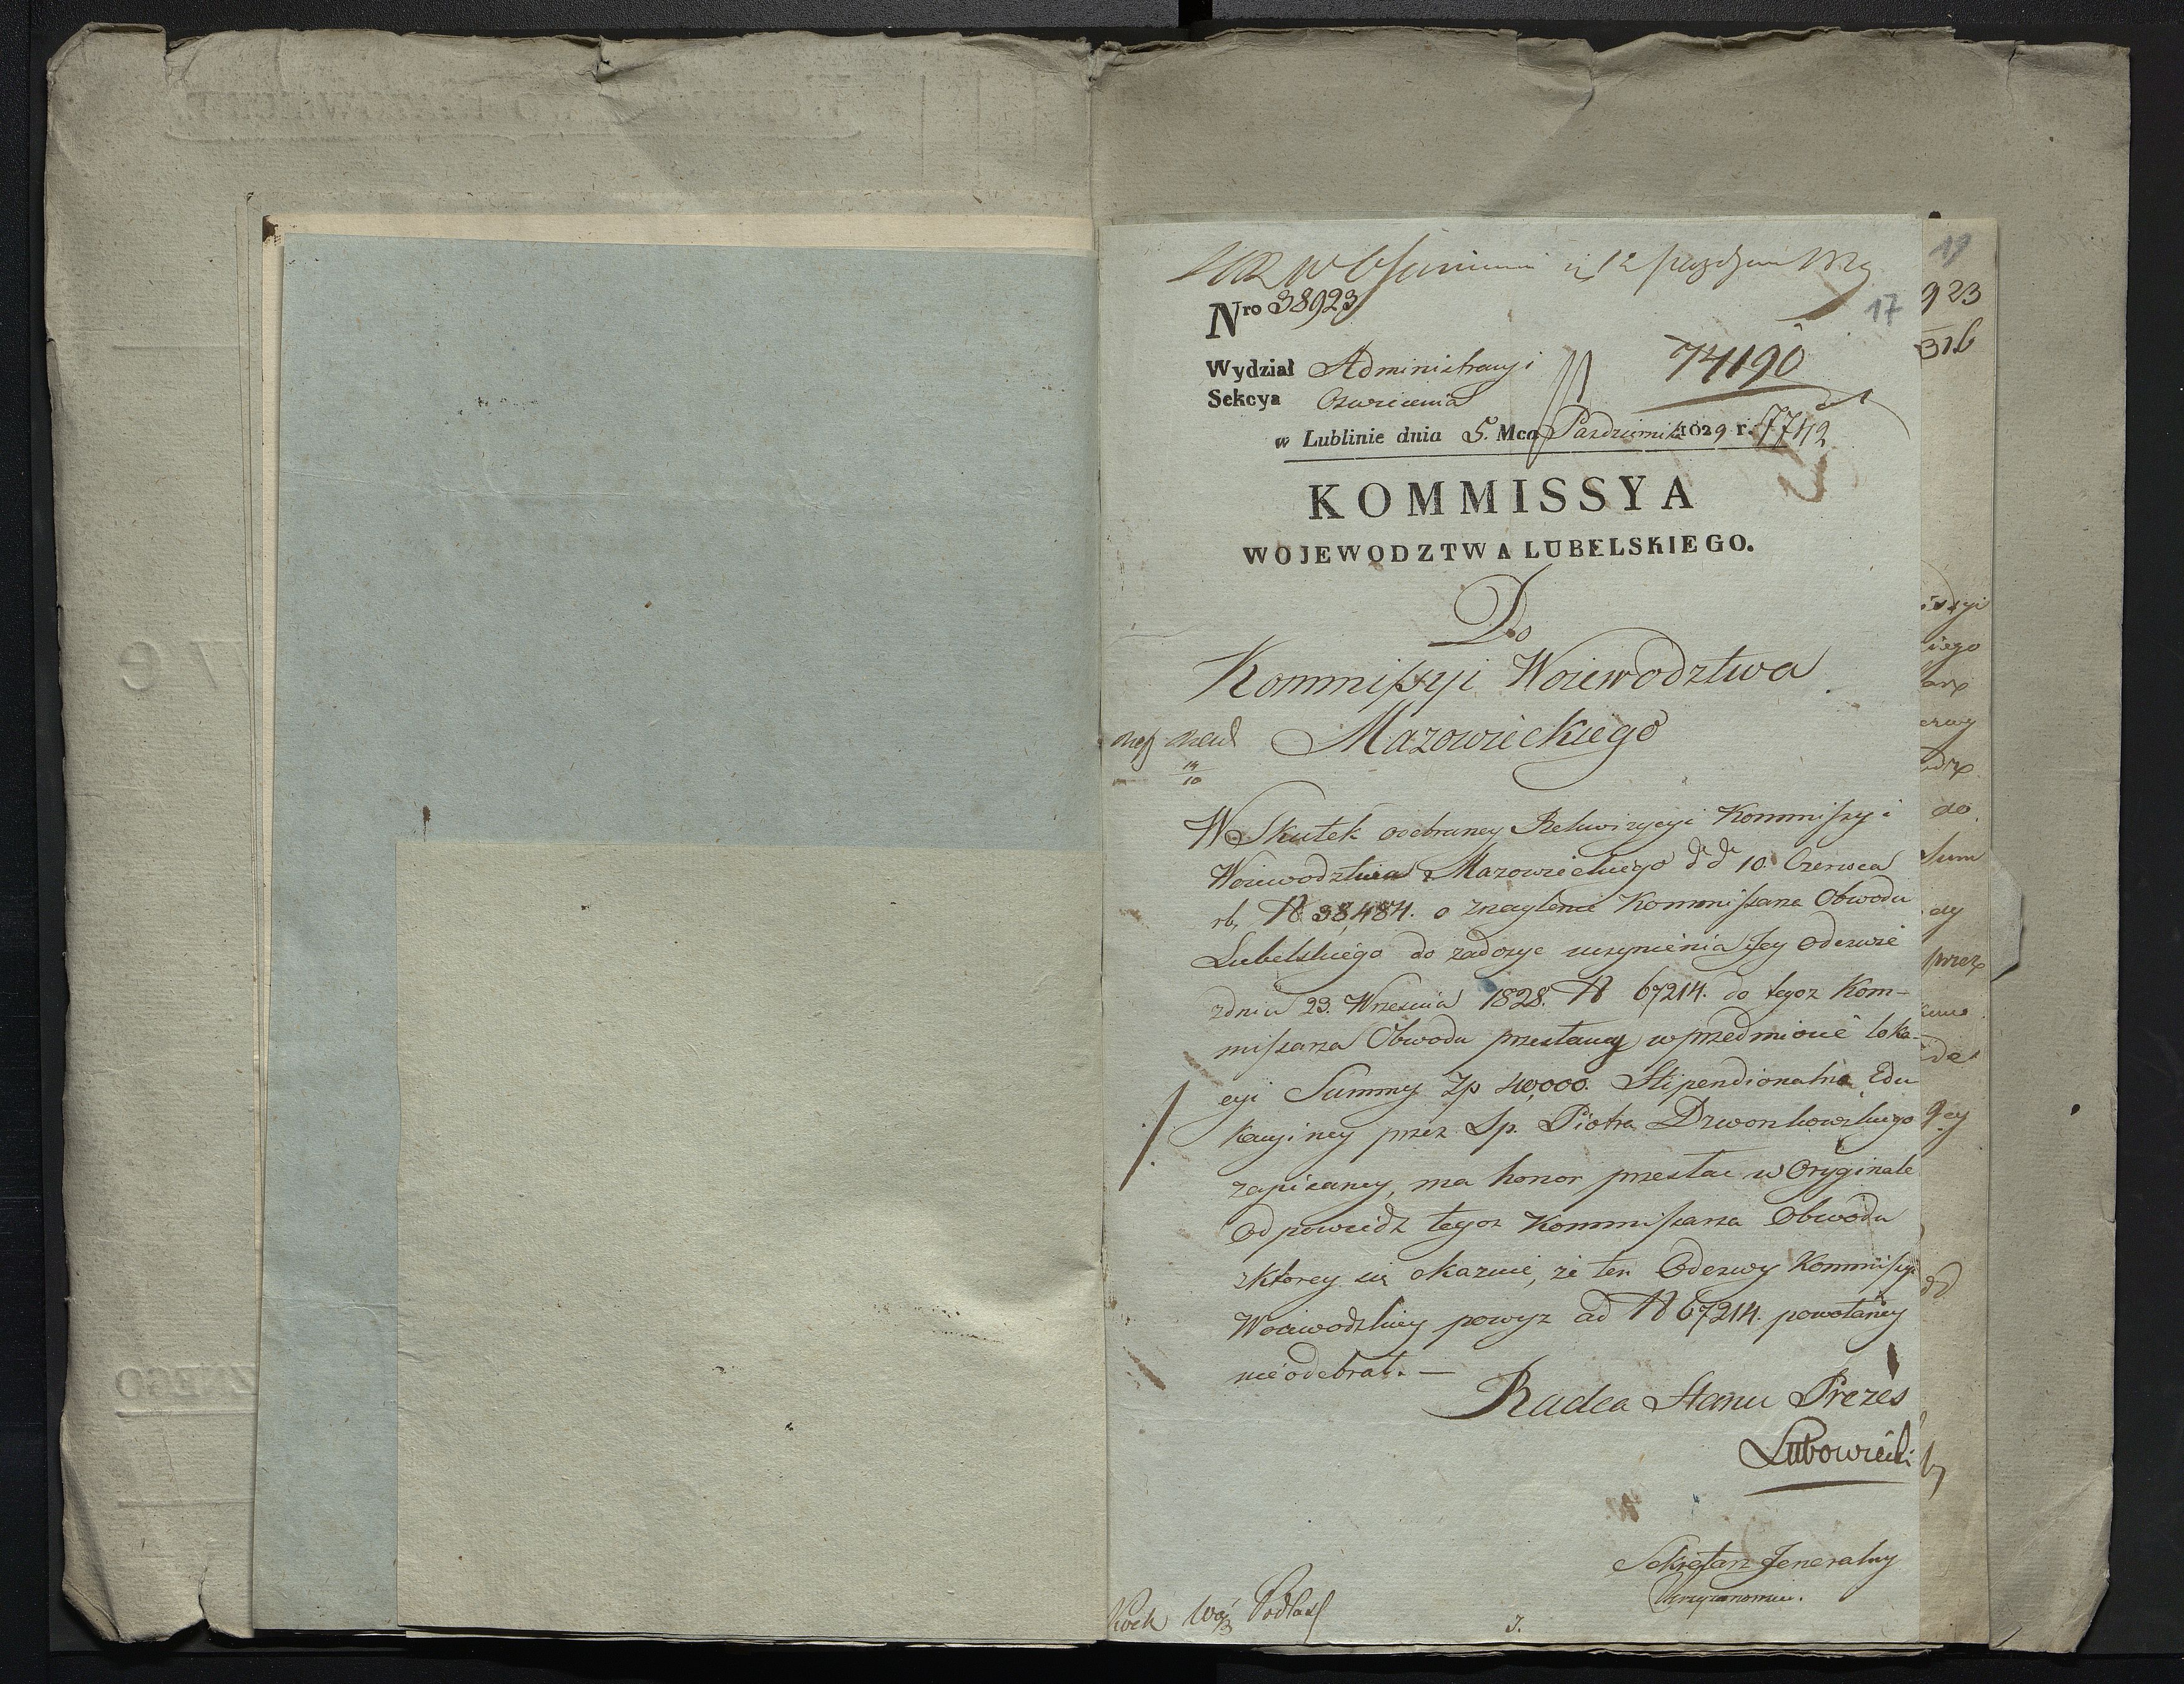 17
Nro 38923
Wydział Administracyi
74190
Sekcya Oswiecenia
w Lublinie dnia 5. Mca Pazdziernika 1829 r. 7742
KOMMISSYA
WOJEWODZTWA LUBELSKIEGO.
Do
Kommissyi Woiewodztwa
Mazowieckiego
14/10
W Skutek odebraney Rekwizycyi Kommissyi
Woiewodztwa Mazowieckiego d d 10. Czerwca
rb, N 38,484. o znaglenie Kommissarza Obwodu
Lubelskiego do zadosyc uczynienia Jey Odezwie
z dnia 23. Wrzesnia 1828. N 67214. do tegoz Kom-
missarza Obwodu przesłaney w przedmiocie loka-
cyi Summy Zp 40,000. Stipendionalno Edu
kacyiney przez Sp. Piotra Dzwonkowskiego
zapisaney, ma honor przesłac w Oryginale
Odpowiedz tegoz Kommissarza Obwodu
z ktorey się okazuie, że ten Odezwy Kommissyi
Woiewodzkiey powyz ad N 67214. powołaney
nie odebrał. —
Radca Stanu Prezes
Lubowiecki
Sekretarz Jeneralny
923
316
do
przez